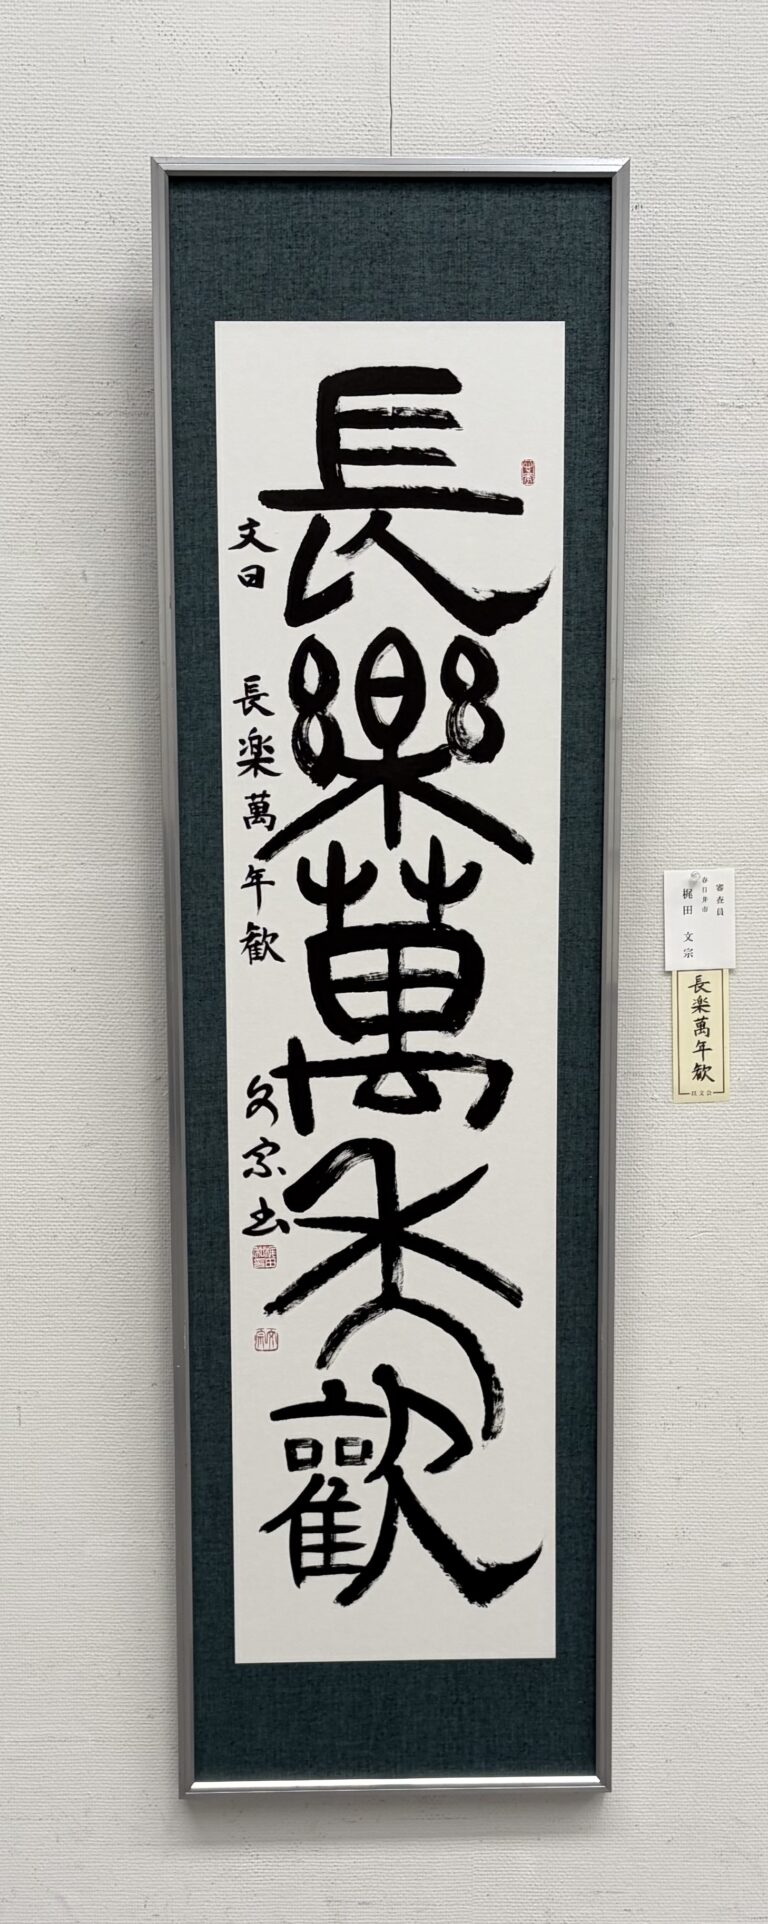 長樂萬年歡
文曰 長楽萬年歓 文宗书
審査員
春日井市
梶田 文宗
長楽萬年歓
玟文会